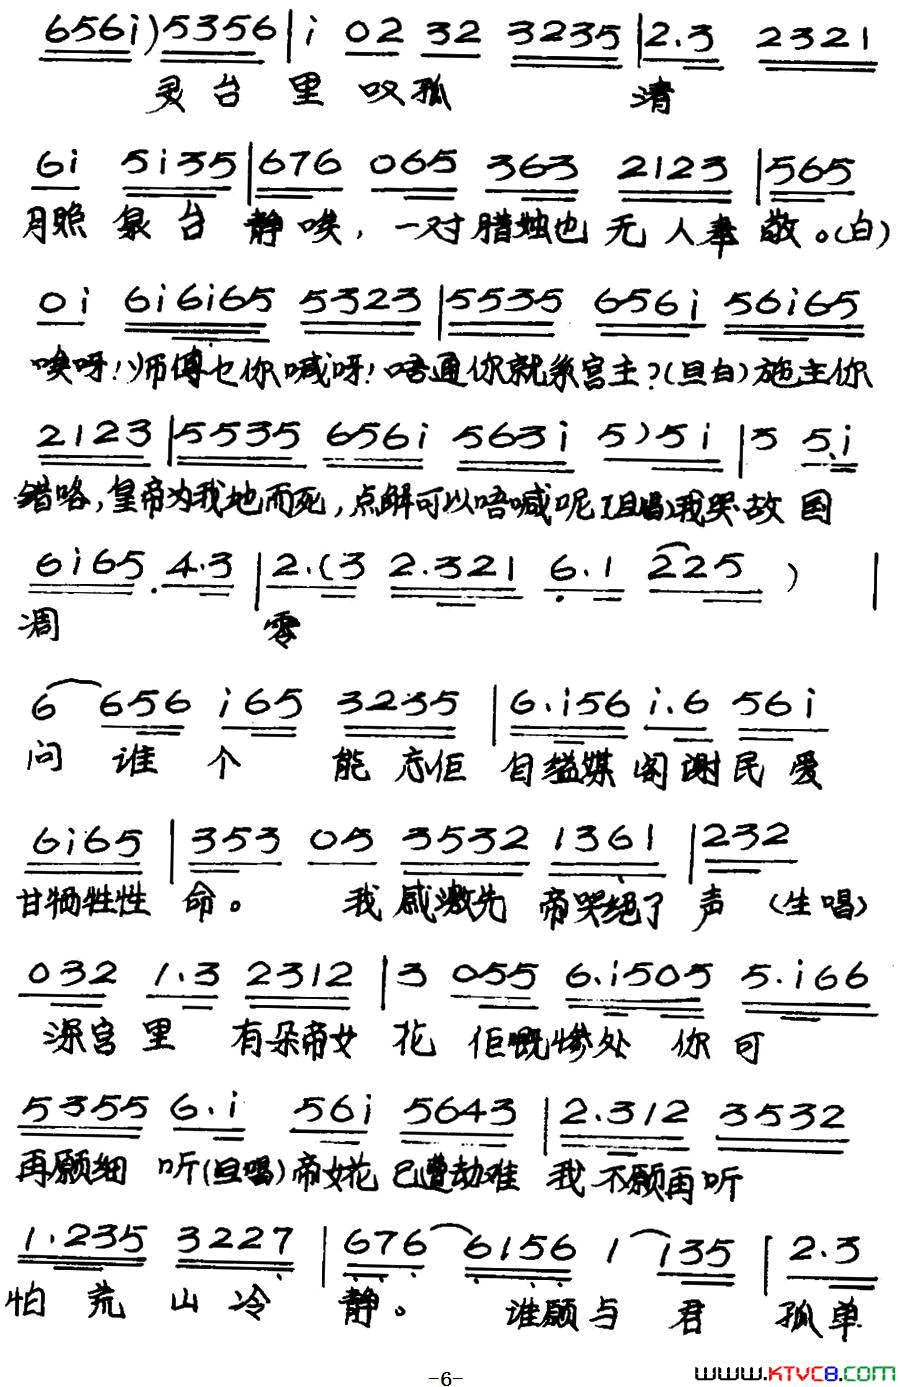 656i)5356|i 02 32 3235|2.3 2321
灵台里叹孤清
6i 5i35|676 065 363 2123|565
月照泉台静唉，一对腊烛也无人奉敬。(白)
0i 6i6i65 5323|5535 656i 56i65
唉呀!师傅乜你喊呀!唔通你就系宫主?(旦白)施主你
2123|5535 656i 563i 5)5i|3 5.i
错咯,皇帝为我地而死,点解可以唔喊呢(旦唱)我哭故国
6i65.4.3|2.(3 2.321 6.1 225)|
凋零
6 656 i65 3235|6.i56 i.6 56i
问谁个能忘佢自缢媒阁谢民爱
6i65|353 03 3532 1361|232
甘牺牲性命。我感激先帝哭绝了声(生唱)
032 1.3 2312|3 055 6.i505 5.i66
深宫里有朵帝女花佢嘅惨处你可
5355 6.i 56i 5643|2.312 3532
再愿细听(旦唱)帝女花已遭劫难我不愿再听
1.235 3227|676 6156 1 i35|2.3
怕荒山冷静。谁愿与君孤单
-6-
WWW.KTVC8.COM